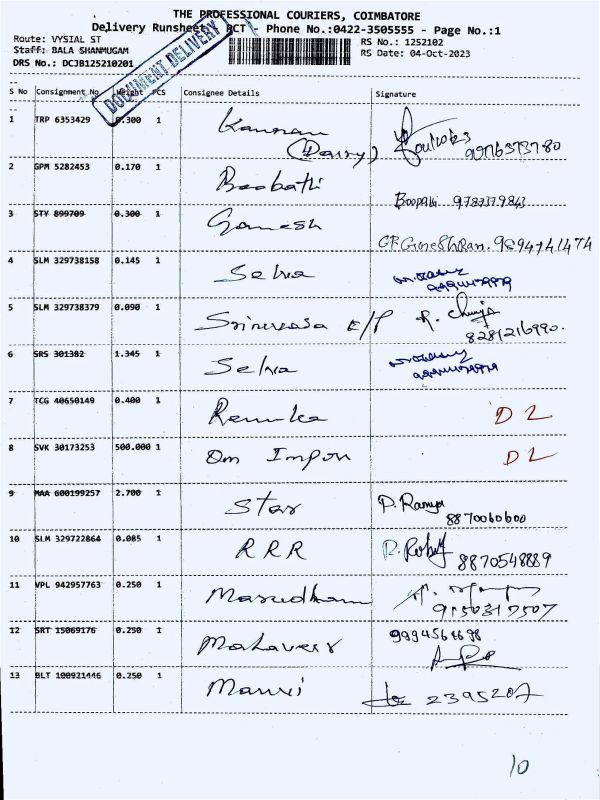 THE PROFESSIONAL COURIERS, COIMBATORE
Delivery Runsheet RCT - Phone No.:0422-3505555 - Page No.:1
Route: VYSIAL ST
Staff: BALA SHANMUGAM
DRS No.: DCJB125210201
RS No.: 1252102
RS Date: 04-Oct-2023
DOCUMENT DELIVERY
S No Consignment No Weight PCS Consignee Details Signature
1 TRP 6353429 0.300 1 Kannan
(Dairy)
2 GPM 5282453 0.170 1 Boobathi
Boopathi 9787379843
3 STY 899709 0.300 1 Ganesh
9894741474
4 SLM 329738158 0.145 1 Selva
5 SLM 329738379 0.090 1 Srinivasa E/P
8281216990.
6 SRS 301382 1.345 1 Selva
7 TCG 40650149 0.400 1 Renuka D2
8 SVK 30173253 500.000 1 Om Impon D2
9 MAA 600199257 2.700 1 Star P. Ramya
8870060600
10 SLM 329722864 0.085 1 RRR
8870548889
11 VPL 942957763 0.250 1 Marudham
9150317507
12 SRT 15069176 0.250 1 Mahaveer
9994564698
13 BLT 100921446 0.250 1 Manvi
2395207
10